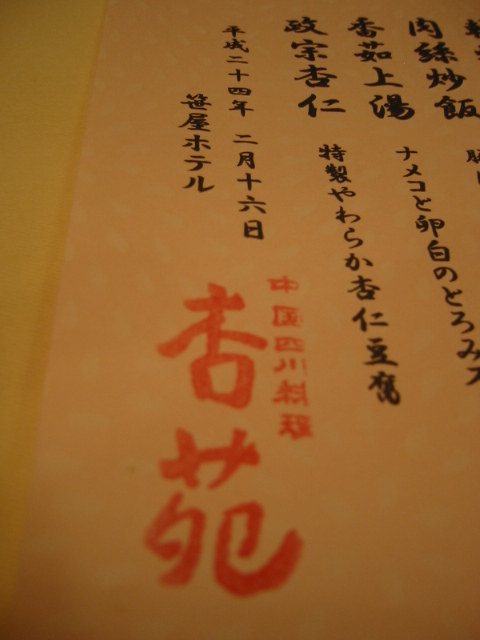 肉絲炒飯
香茹上湯
ナメコと卵白のとろみス
政宗杏仁
特製やわらか杏仁豆腐
平成二十四年 二月十六日
笹屋ホテル
中国四川料理
杏苑